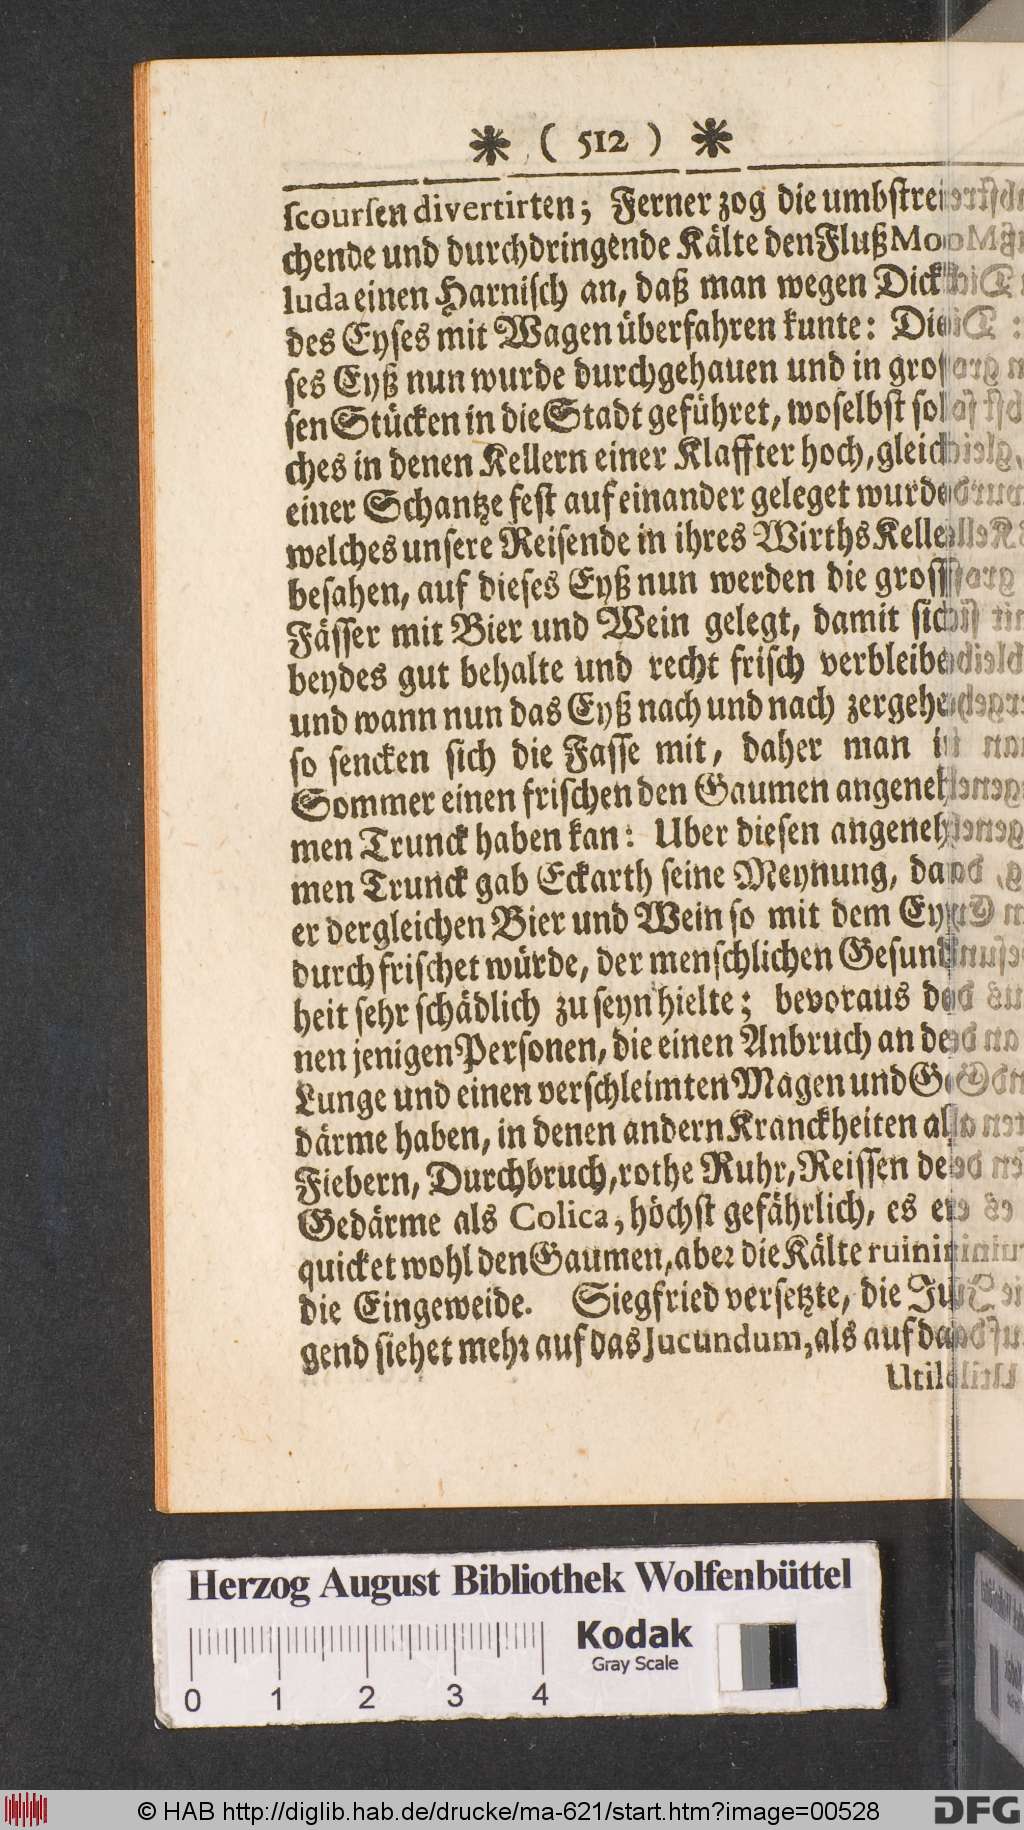 * ( 512 ) *
ſcourſen divertirten; Ferner zog die umbſtrei
chende und durchdringende Kälte den Fluß Mo
luda einen Harniſch an, daß man wegen Dick
des Eyſes mit Wagen überfahren kunte: Die
ſes Eyß nun wurde durchgehauen und in groſ
ſen Stücken in die Stadt geführet, woſelbſt ſol
ches in denen Kellern einer Klaffter hoch, gleich
einer Schantze feſt auf einander geleget wurde
welches unſere Reiſende in ihres Wirths Kelle
beſahen, auf dieſes Eyß nun werden die groſſ
Fäſſer mit Bier und Wein gelegt, damit ſich
beydes gut behalte und recht friſch verbleibe
und wann nun das Eyß nach und nach zergehe
ſo ſencken ſich die Faſſe mit, daher man i
Sommer einen friſchen den Gaumen angeneh
men Trunck haben kan: Uber dieſen angeneh
men Trunck gab Eckarth ſeine Meynung, da
er dergleichen Bier und Wein ſo mit dem Ey
durchfriſchet würde, der menſchlichen Geſund
heit ſehr ſchädlich zu ſeyn hielte; bevoraus de
nen jenigen Perſonen, die einen Anbruch an de
Lunge und einen verſchleimten Magen und Ge
därme haben, in denen andern Kranckheiten al
Fiebern, Durchbruch, rothe Ruhr, Reiſſen de
Gedärme als Colica, höchſt gefährlich, es er
quicket wohl den Gaumen, aber die Kälte ruini
die Eingeweide. Siegfried verſetzte, die Ju
gend ſiehet mehr auf das Jucundum, als auf da
Utile
Herzog August Bibliothek Wolfenbüttel
Kodak
Gray Scale
0 1 2 3 4
© HAB http://diglib.hab.de/drucke/ma-621/start.htm?image=00528
DFG